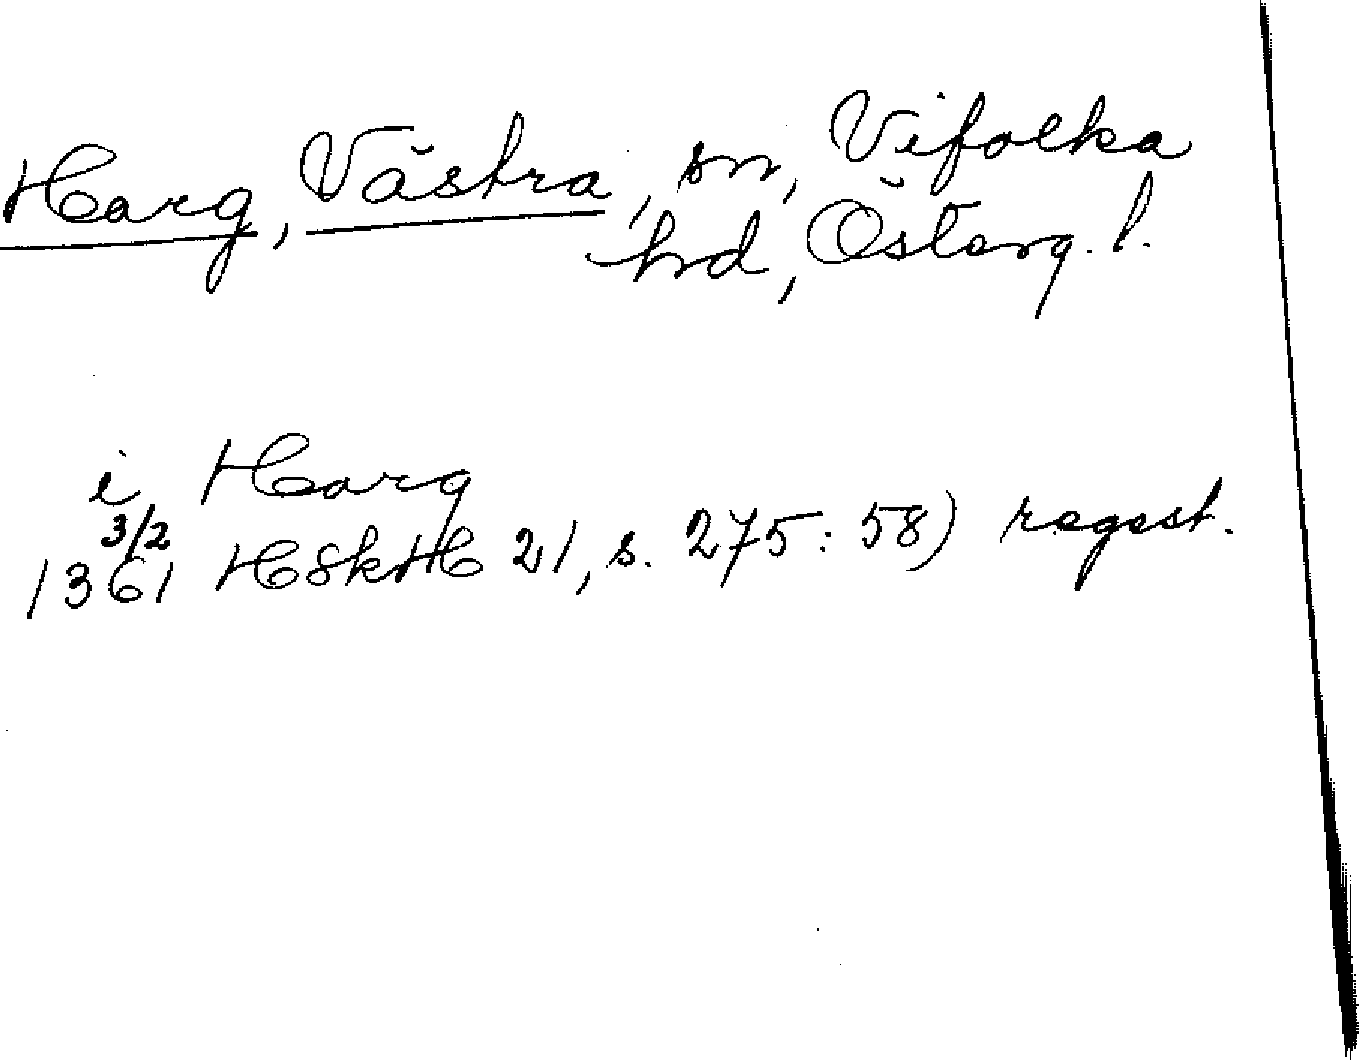 Harg, Västra, sn, Vifolka
hrd, Österg. l.
i Harg
3/2
1361 HSkH 21, s. 275: 58) regest.